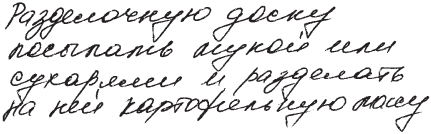 Разделочную доску
посыпать мукой или
сухарями и разделать
на ней картофельную массу